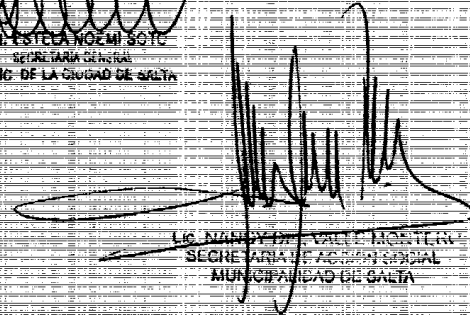 ESTELA NOEMI SOTO
SECRETARIA GENERAL
DE LA CIUDAD DE SALTA
LIC. NANCY DEL VALLE MONTERO
SECRETARIA DE ACCION SOCIAL
MUNICIPALIDAD DE SALTA